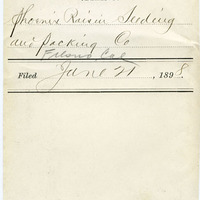 Phoenix Raisin Seeding
and Packing Co
Fresno Cal
Filed June 21, 1898.